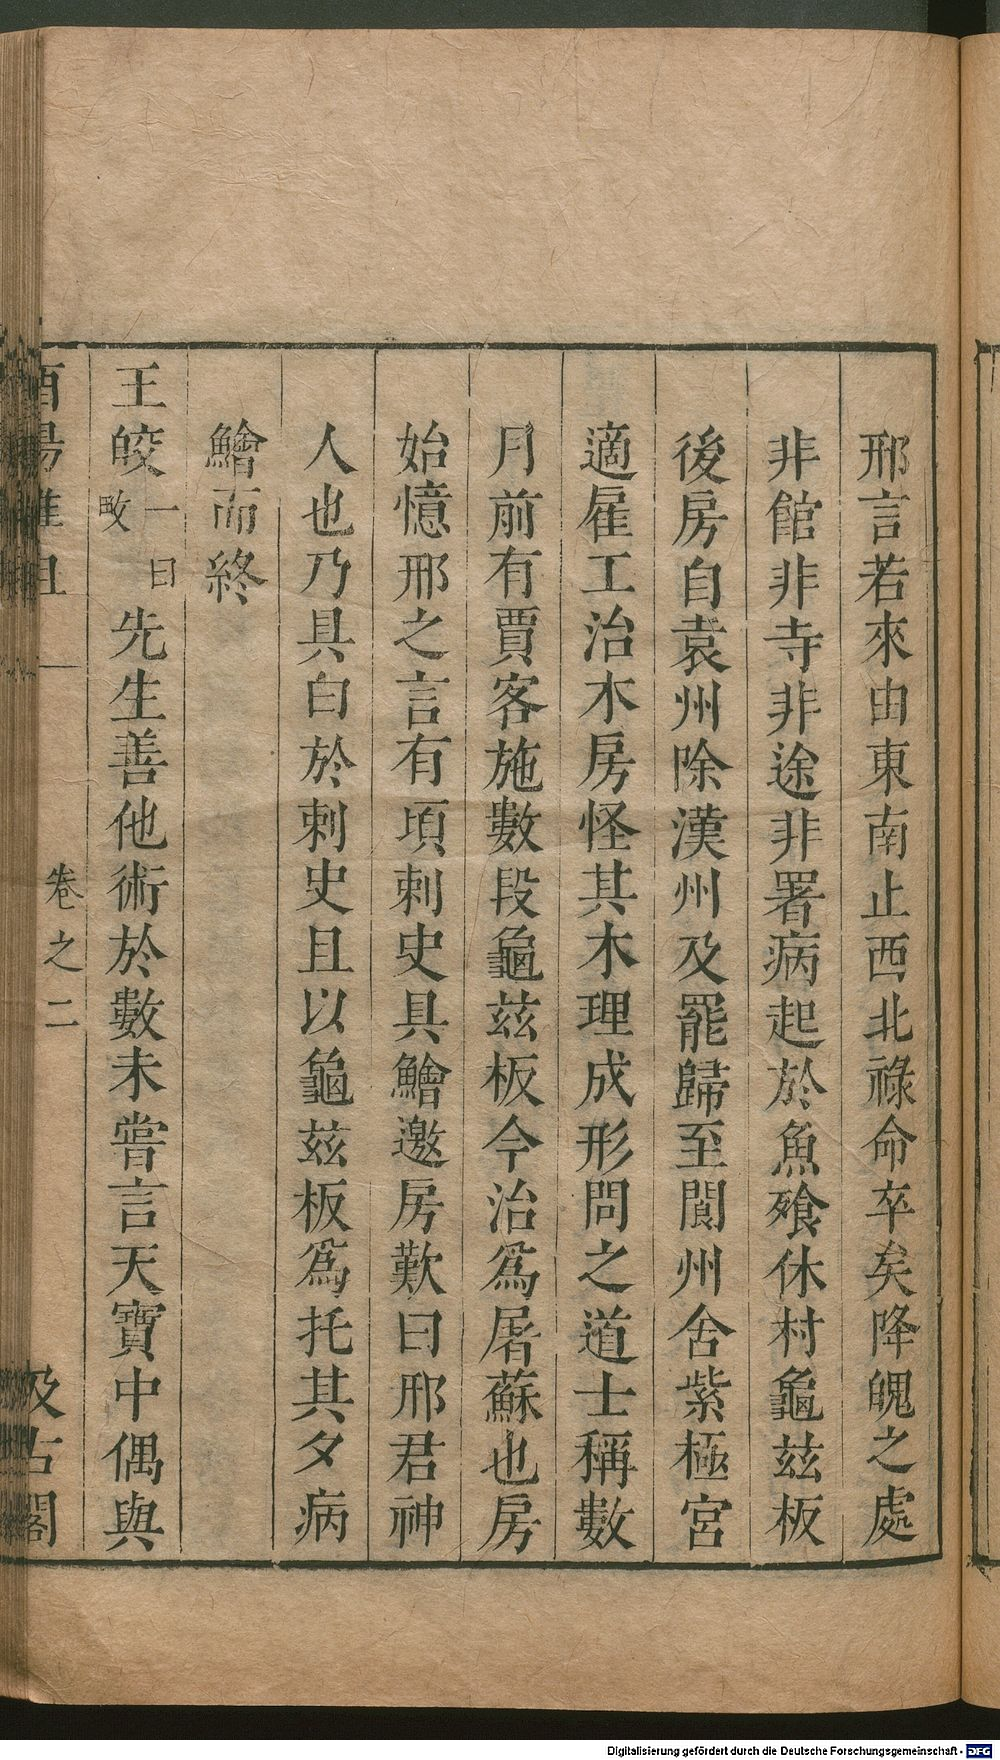 邢言若來由東南止西北祿命卒矣降魄之處
非館非寺非途非署病起於魚飱休村龜茲板
後房自袁州除漢州及罷歸至閬州舍紫極宮
適雇工治木房怪其木理成形問之道士稱數
月前有賈客施數段龜茲板今治爲屠蘇也房
始憶邢之言有項刺史具鱠邀房歎曰邢君神
人也乃具白於刺史且以龜茲板爲托其夕病
鱠而終
王皎一曰畋先生善他術於數未嘗言天寶中偶與
卷之二
Digitalisierung gefördert durch die Deutsche Forschungsgemeinschaft - DFG